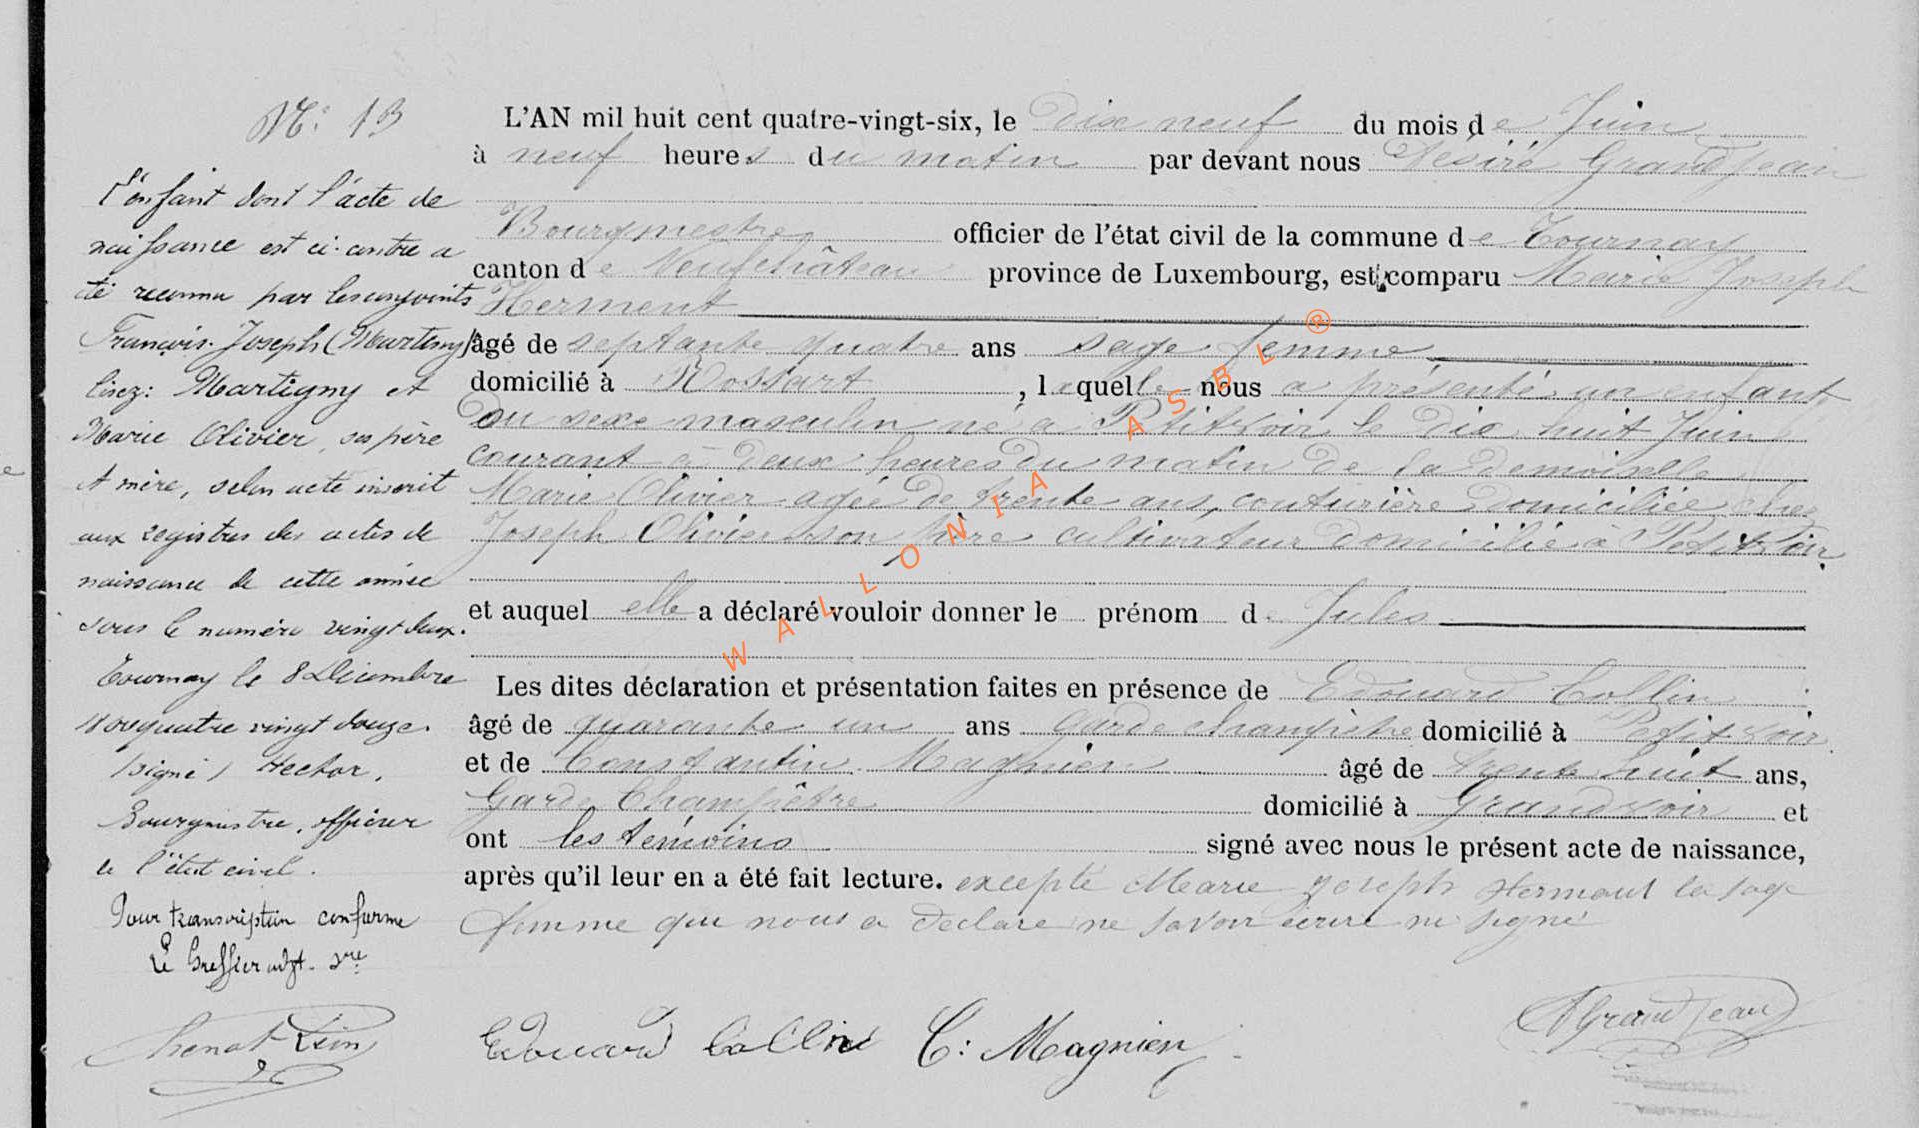 N°: 13
L'enfant dont l'acte de
naissance est ci-contre a
été reconnu par les conjoints
François-Joseph (Martiny)
lisez: Martigny et
Marie Olivier, ses père
et mère, selon acte inscrit
aux registres des actes de
naissance de cette année
sous le numéro vingt deux.
Tournay le 8 Décembre
1800 quatre vingt douze.
(signé) Hector,
Bourgmestre, officier
de l'état civil.
Pour transcription conforme
Le Greffier adjt. sre
L'AN mil huit cent quatre-vingt-six, le dix neuf du mois de Juin
à neuf heures du matin par devant nous Désiré Grandjean
Bourgmestre officier de l'état civil de la commune de Tournay
canton de Neufchâteau province de Luxembourg, est comparu Marie Joseph
Hermont
âgé de septante quatre ans sage femme
domicilié à Mossart, laquelle nous a présenté un enfant
du sexe masculin né à Petitvoir le dix huit Juin
courant à deux heures du matin de la demoiselle
Marie Olivier agée de trente ans, couturière domiciliée chez
Joseph Olivier son père cultivateur domicilié à Petitvoir
et auquel elle a déclaré vouloir donner le prénom de Jules
Les dites déclaration et présentation faites en présence de Edouard Collin
âgé de quarante un ans garde champêtre domicilié à Petitvoir
et de Constantin Magnien âgé de trente huit ans,
Garde Champêtre domicilié à Grandvoir et
ont les témoins signé avec nous le présent acte de naissance,
après qu'il leur en a été fait lecture. excepté Marie Joseph Hermont la sage
femme qui nous a déclaré ne savoir écrire ni signé
Edouard Collin C: Magnien DGrandJean
WALLONIA ASBL ®